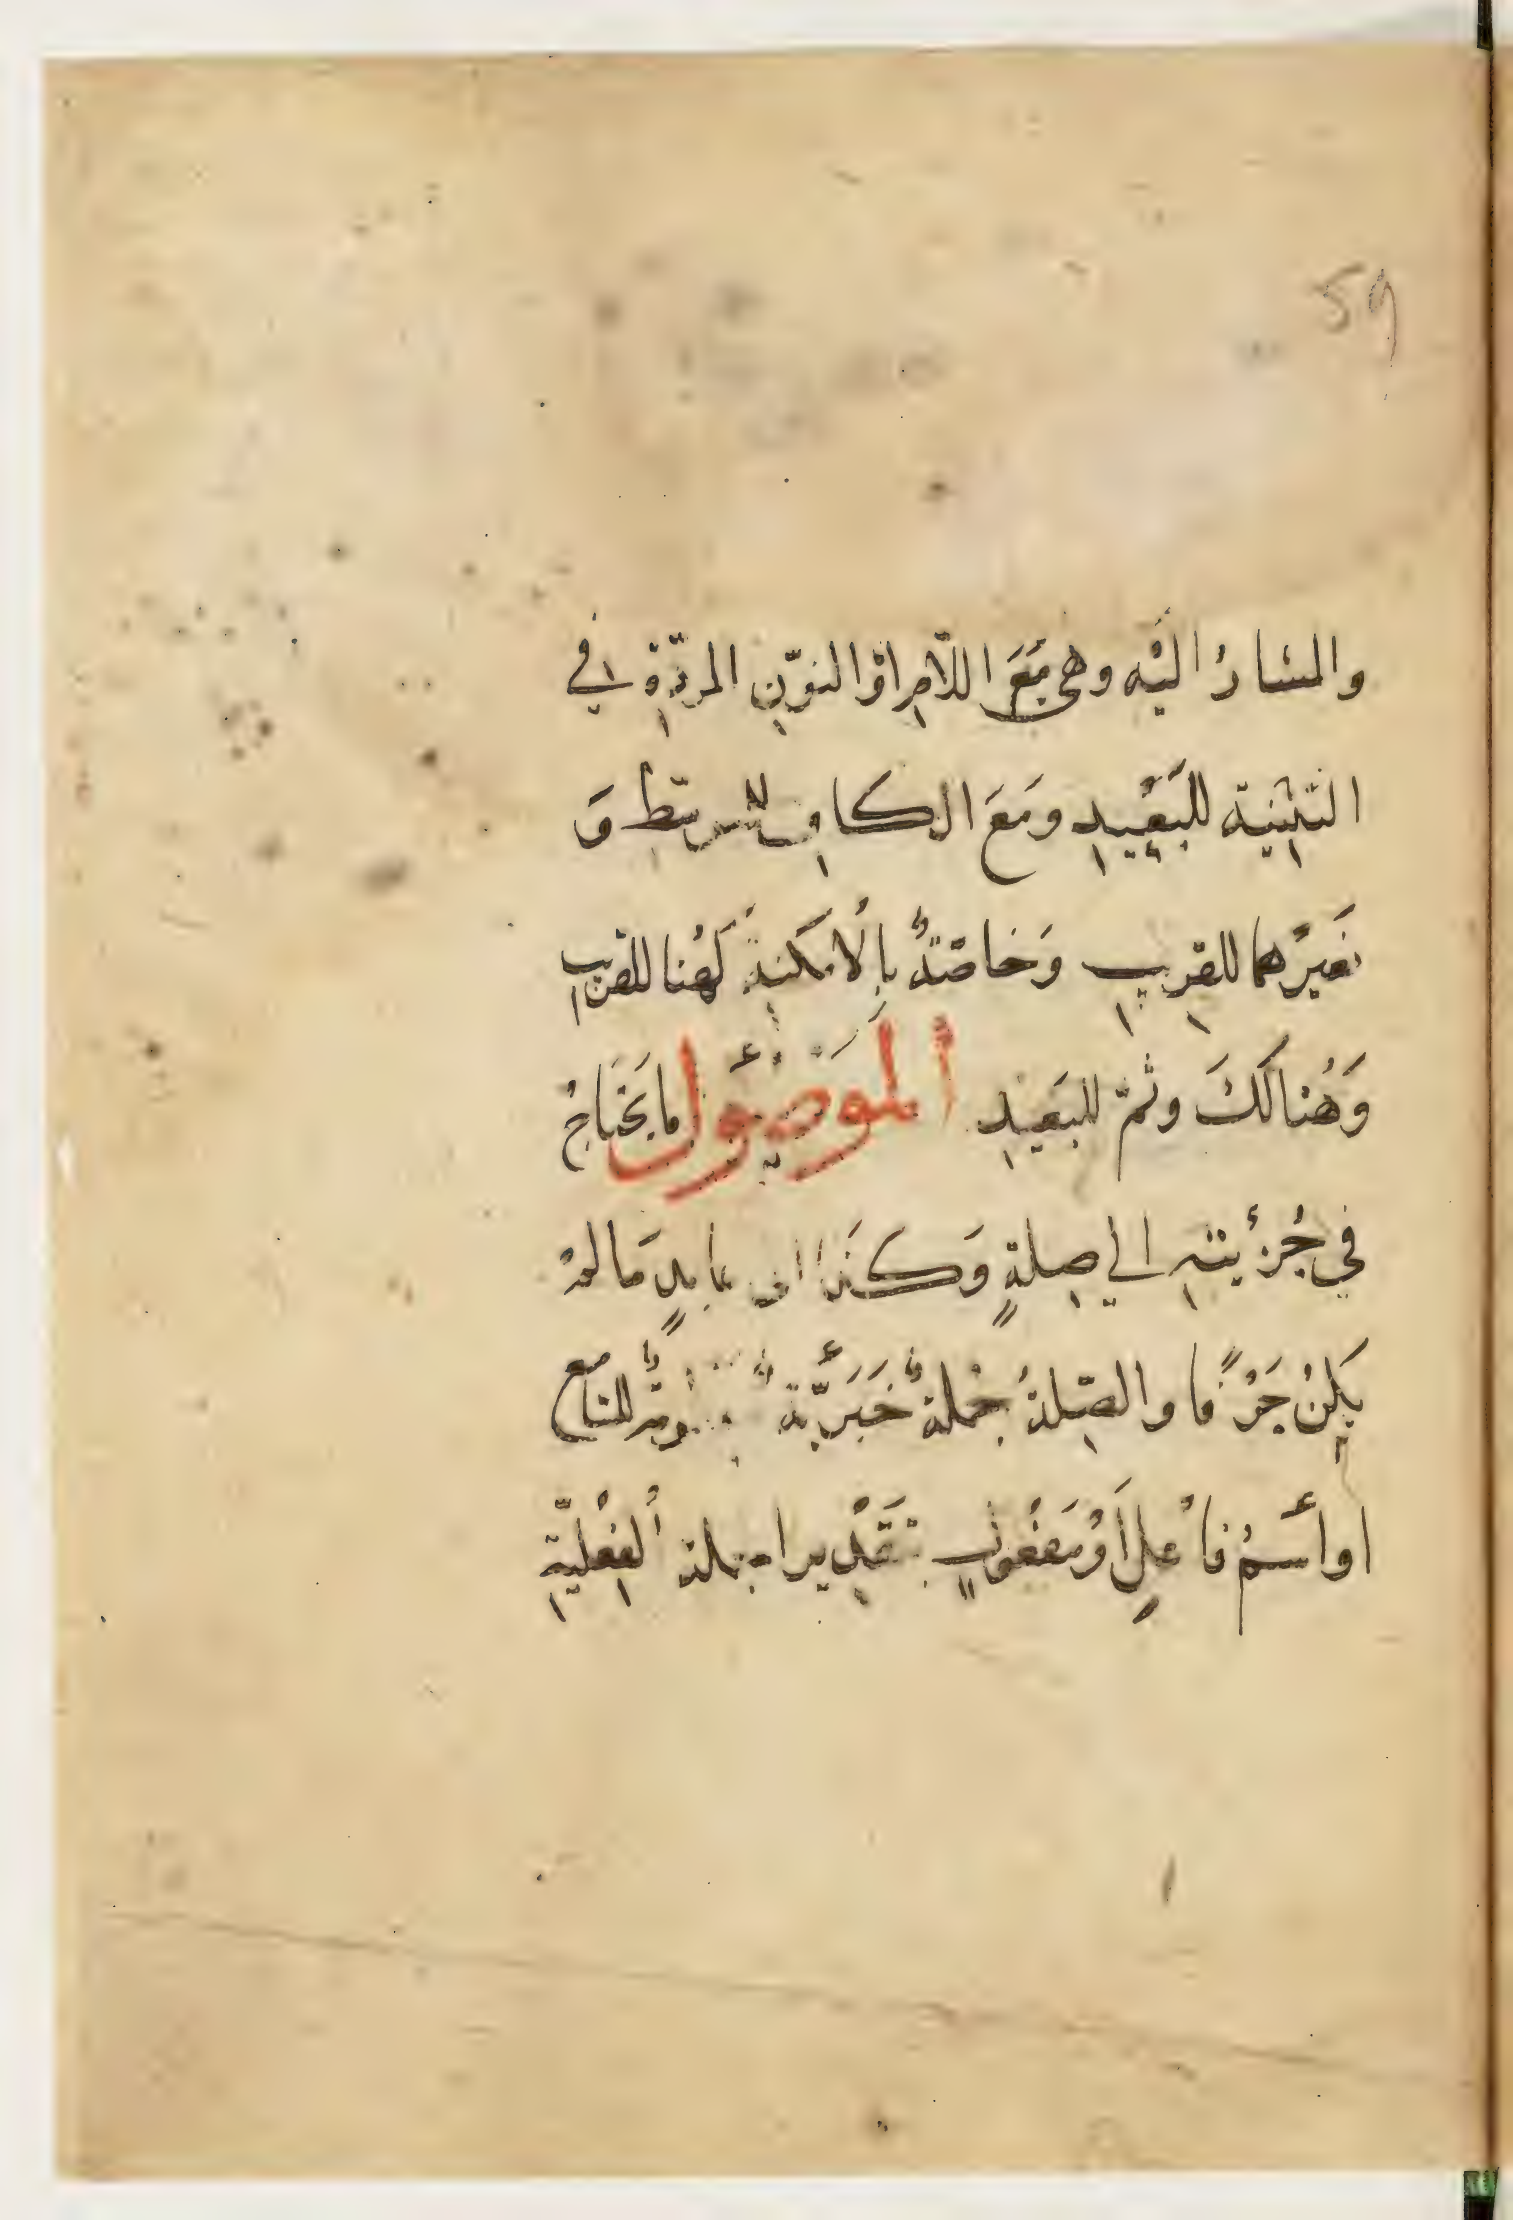 59
والمشارُ اليْه وهي مَعَ اللّامِ اوْ النوّنِ المزيدّةِ في
التثنِية للبَعْيدِ ومَعَ الكافِ للمتوسّطِ وَ
غَيرُهما للقرِيبِ وَخاصّةٌ بِالُامكَنِةَ كَهُنا للقرِيبِ
وَهُنالَكَ وثمّ للبَعيدِ ألمَوَصْوُل ما يَحَتاجُ
في جُزئيتهِ الي صِلةٍ وَكذَا الى عايدٍ مَا لمْ
يكِنْ حَرْفًا والصّلةُ جُملةٌ خَبَريّة للسّامع
او أسَمُ فاْعلِ أَوْ مَفْعُولٍ بتَقدِْير الجملة ألفِعْليّةِ